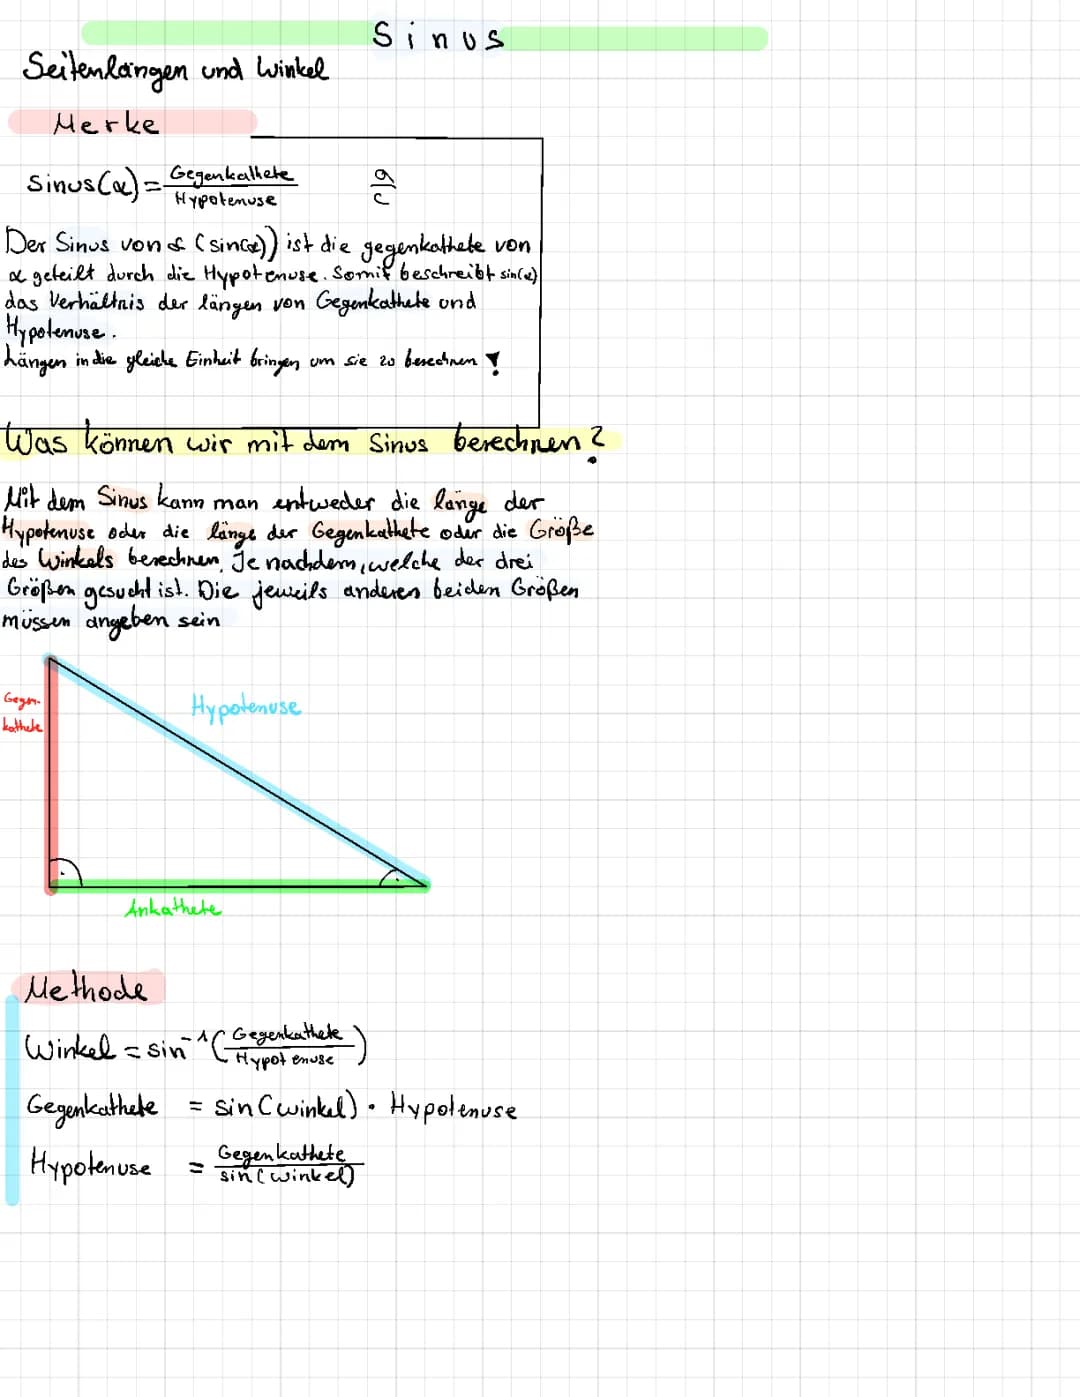 Sinus
Seitenlängen und Winkel
Merke
Sinus(α) = Gegenkathete / Hypotenuse   a/c
Der Sinus von α (sin(α)) ist die gegenkathete von
α geteilt durch die Hypotenuse. Somit beschreibt sin(α)
das Verhältnis der längen von Gegenkathete und
Hypotenuse.
Längen in die gleiche Einheit bringen um sie zu berechnen !
Was können wir mit dem Sinus berechnen?
Mit dem Sinus kann man entweder die länge der
Hypotenuse oder die länge der Gegenkathete oder die Größe
des Winkels berechnen. Je nachdem, welche der drei
Größen gesucht ist. Die jeweils anderen beiden Größen
müssen angeben sein
Gegen-
kathete
Hypotenuse
Ankathete
Methode
Winkel = sin⁻¹(Gegenkathete / Hypotenuse)
Gegenkathete = sin(winkel) · Hypotenuse
Hypotenuse = Gegenkathete / sin(winkel)